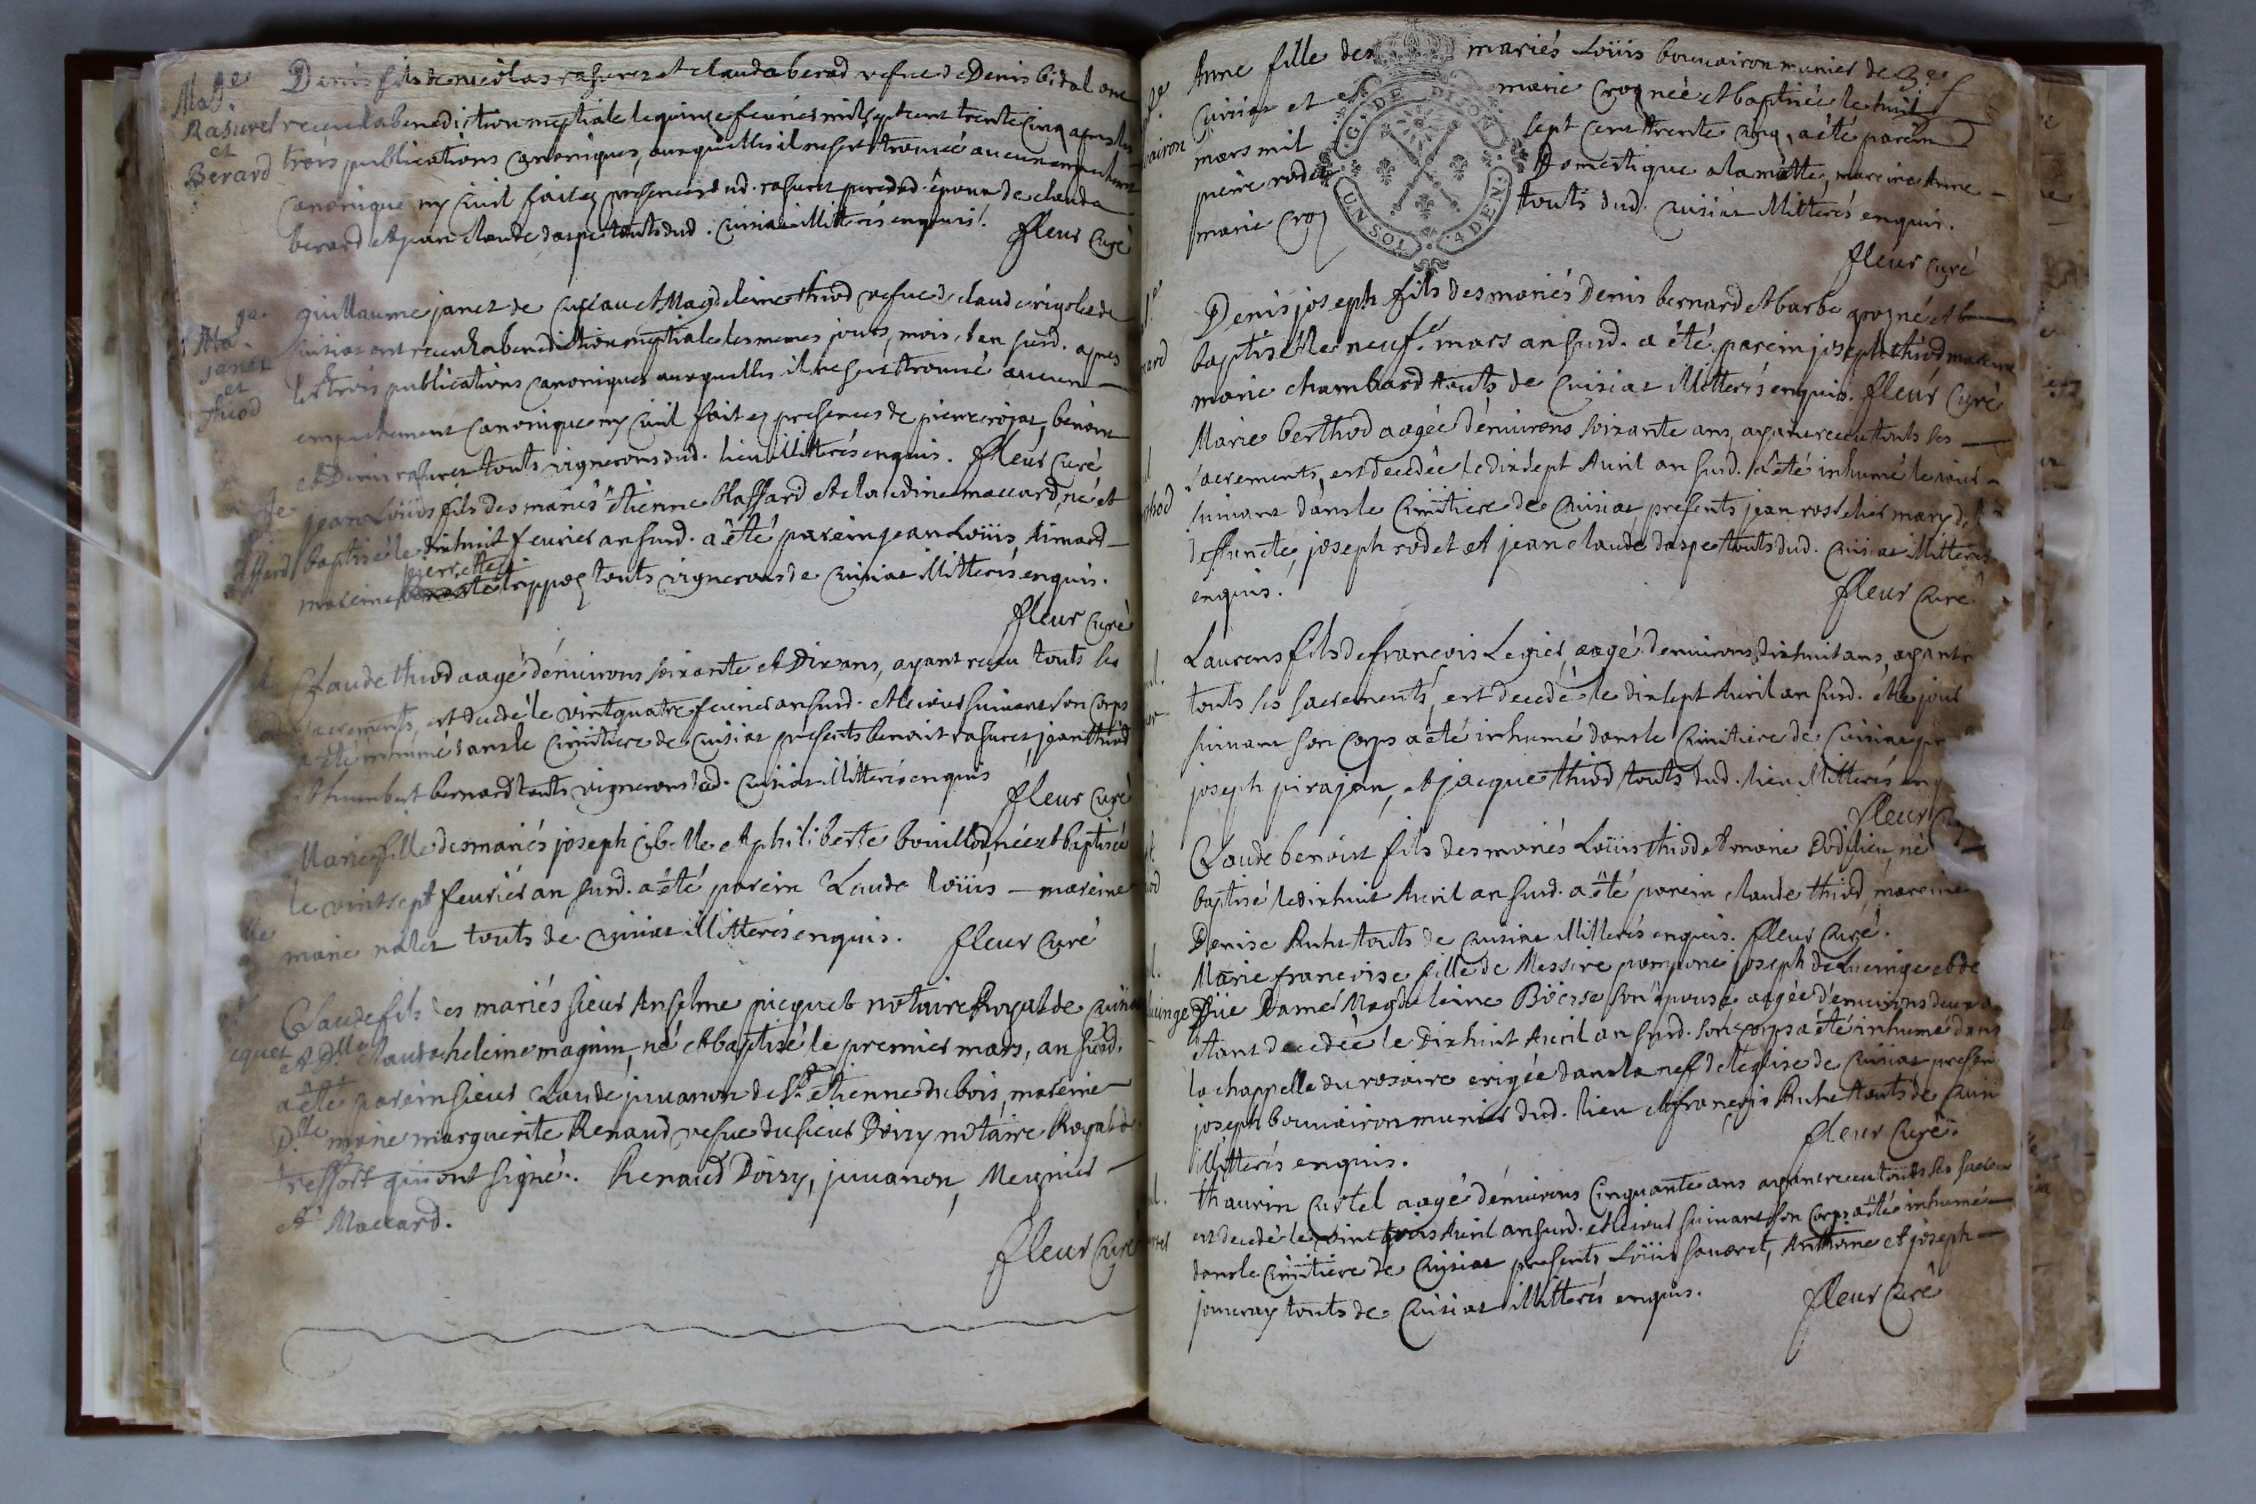 Mage
Rasuret
et
Berard
Denis fils de nicolas rasuret et clauda berard vefue de Denis bidal ont
receu la benediction nuptiale le quinze feurier mil sept cent trente cinq apres les
trois publications canoniques, auxquelles il ne s'est trouué aucun empechement
canonique ny ciuil fait en presences dud. rasuret pere dud. époux de clauda
berard et jean claude daspe touts dud. Cuisiat illitterés enquis.
fleur Curé
ga.
janet
et
thiod
guillaume janet de cuseau et Magdeleine thiod vefue de claude rigolet de
cuisiat ont receu la benediction nuptiale les memes jours, mois, et an susd. apres
les trois publications canoniques auxquelles il ne s'est trouué aucun
empechement canonique ny ciuil fait en presences de pierre rojat, benoit
et Denis rasuret touts vignerons dud. lieu illitterés enquis. fleur Curé
jean Loüis fils des mariés êtienne Haffard et claudine maccard, né et
baptisé le dixhuit feurier an susd. a été parein jean Loüis Aimard
pierrette
mareine trippoz touts vignerons de cuisiat illitterés enquis.
fleur Curé
Claude thiod aagé d'enuirons soixante et Dix ans, ayant receu touts les
sacrements, est decedé le vint quatre feurier an susd. et le jour suiuant son corps
a été inhumé dans le Cimitiere de cuisiat presents benoit rasuret, jean thiod
et humbert bernard touts vignerons dud. cuisiat illitterés enquis
fleur Curé
Marie fille des mariés joseph Cybelle et philiberte bouillod, née et baptisée
le vint sept feurier an susd. a été parein Claude loüis — mareine
marie nalet touts de cuisiat illitterés enquis. fleur Curé
Claude fils des mariés sieur Anselme picquet notaire Royal de cuisiat
et Dlle clauda heleine magnin, né et baptisé le premier mars, an susd.
a été parein sieur Claude juuanon de St. êtienne du bois, mareine
Dlle marie marguerite Renaud vefue du sieur Doizy notaire Royal de
treffort qui ont signé. Renaud Doizy, juuanon, Meynier
et Maccard.
fleur Curé
Anne fille des mariés Loüis bouuairon munier de
cuisiat et de marie Crognée et baptisée le huit
mars mil sept cent trente cinq, a été parein
pierre rodet Domestique a la motte, mareine Anne
marie Croz touts dud. cuisiat illitterés enquis.
G. DE DIJON
UN SOL 4 DEN.
fleur Curé
Denis joseph fils des mariés Denis bernard et barbe grogné est
baptisé le neuf.e mars an susd. a été parein joseph thiod, mareine
marie chambard touts de cuisiat illitterés enquis. fleur Curé
Marie berthod aagée d'enuirons soixante ans, ayant receu touts les
sacrements, est decedée le dixsept Auril an susd. a été inhumé le jour
suiuant dans le Cimitiere de cuisiat presents jean rosselier mary de la
deffuncte, joseph rodet et jean claude daspe touts dud. cuisiat illitterés
enquis.
fleur Curé
Laurens fils de francois Legier, aagé d'enuirons dixhuit ans, ayant
touts les sacrements, est decedé le dixsept Auril an susd. et le jour
suiuant son corps a été inhumé dans le Cimitiere de cuisiat
joseph pirajan, et jacque thiod touts dud. lieu illitterés enq
fleur
Claude benoist fils des mariés Loüis thiod et marie Dodelieu, né
baptisé le dixhuit Auril an susd. a été parein claude thiod, mareine
Denise Ruhe touts de cuisiat illitterés enquis. fleur Curé.
Marie francoise fille de Messire pompone joseph de Lucinge et de
Düe Dame Magdeleine Böcsse son épouse aagée d'enuirons deux
étant decedée le Dixhuit Auril an susd. son corps a été inhumé dans
la chappelle du rosaire erigée dans la nef de l'eglise de cuisiat presen
joseph bouuairon munier dud. lieu et francois Ruhe touts de cuisi
illitterés enquis.
fleur Curé
thaurin Curtel aagé d'enuirons Cinquante ans ayant receu touts les sacrem
est decedé le vint trois Auril an susd. et le jour suiuant son corps a été inhumé
dans le Cimitiere de Cuisiat presents Loüis sauaret, Anthoine et joseph
jouuray touts de Cuisiat illitterés enquis.
fleur Curé